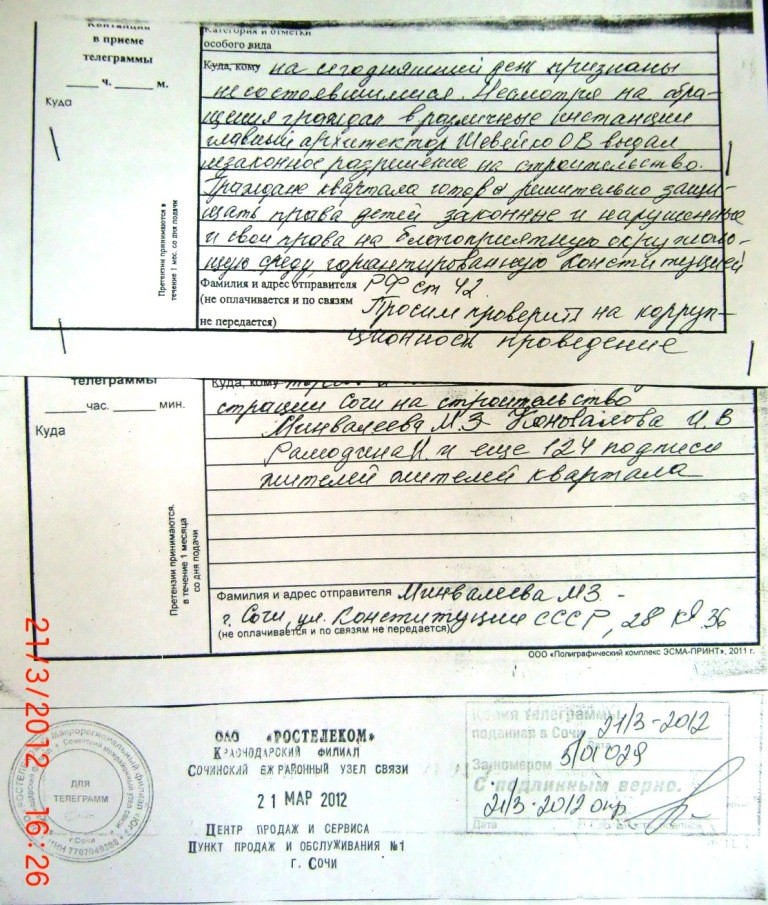 Квитанция
в приеме
телеграммы
____ ч. ____ м.
Куда
Претензии принимаются в
течение 1 мес. со дня подачи
Категория и отметки
особого вида
Куда, кому на сегодняшний день признаны
несостоявшимися. Несмотря на обра-
щения граждан в различные инстанции
главный архитектор Шевейко ОВ выдал
незаконное разрешение на строительство.
Граждане квартала готовы решительно защи-
щать права детей законные и нарушенные
и свои права на благоприятную окружаю-
щую среду, гарантированную Конституцией
Фамилия и адрес отправителя РФ ст 42.
(не оплачивается и по связям
не передается)
Просим проверить на корруп-
ционность проведение
телеграммы
____ час. ____ мин.
Куда
Претензии принимаются.
в течение 1 месяца
со дня подачи
Куда, кому
страции Сочи на строительство
Минвалеева М.З Коновалова И. В
и еще 124 подписи
жителей жителей квартала
Фамилия и адрес отправителя Минвалеева МЗ -
г. Сочи, ул. Конституции СССР, 28 кв 36
(не оплачивается и по связям не передается)
ООО «Полиграфический комплекс ЭСМА-ПРИНТ», 2011 г.
21/3/2012 16:26
ДЛЯ
ТЕЛЕГРАММ
г. Сочи
ИНН 7707049388
ОАО «РОСТЕЛЕКОМ»
КРАСНОДАРСКИЙ ФИЛИАЛ
СОЧИНСКИЙ ЕЖРАЙОННЫЙ УЗЕЛ СВЯЗИ
21 МАР 2012
ЦЕНТР ПРОДАЖ И СЕРВИСА
ПУНКТ ПРОДАЖ И ОБСЛУЖИВАНИЯ №1
г. СОЧИ
Копия телеграммы
поданная в Сочи 21/3-2012
За номером 5/01029
С подлинным верно.
21/3-2012 опр.
Дата